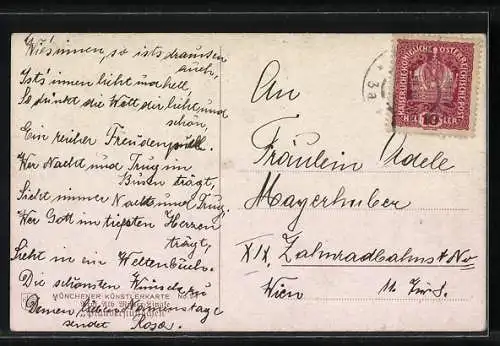 Wie's innen, so ists draussen
auch,
Ists' innen licht und hell,
So dünkt die Welt dir licht und
schön,
Ein reicher Freudenquell.
Wer Nacht und Trug im
Busen trägt,
Sieht immer Nacht und Trug.
Wer Gott im tiefsten Herzen
trägt,
Sieht in ein Weltenbuch.
Die schönsten Wünsche zu
Deinem Namenstage
sendet Rosa.
MÜNCHENER KÜNSTLERKARTE No.
KAISERLICHE KÖNIGLICHE ÖSTERREICHISCHE POST
HELLER
10
3a
An
Fräulein Adele
Mayerhuber
XIX. Zahnradbahnstr No
Wien